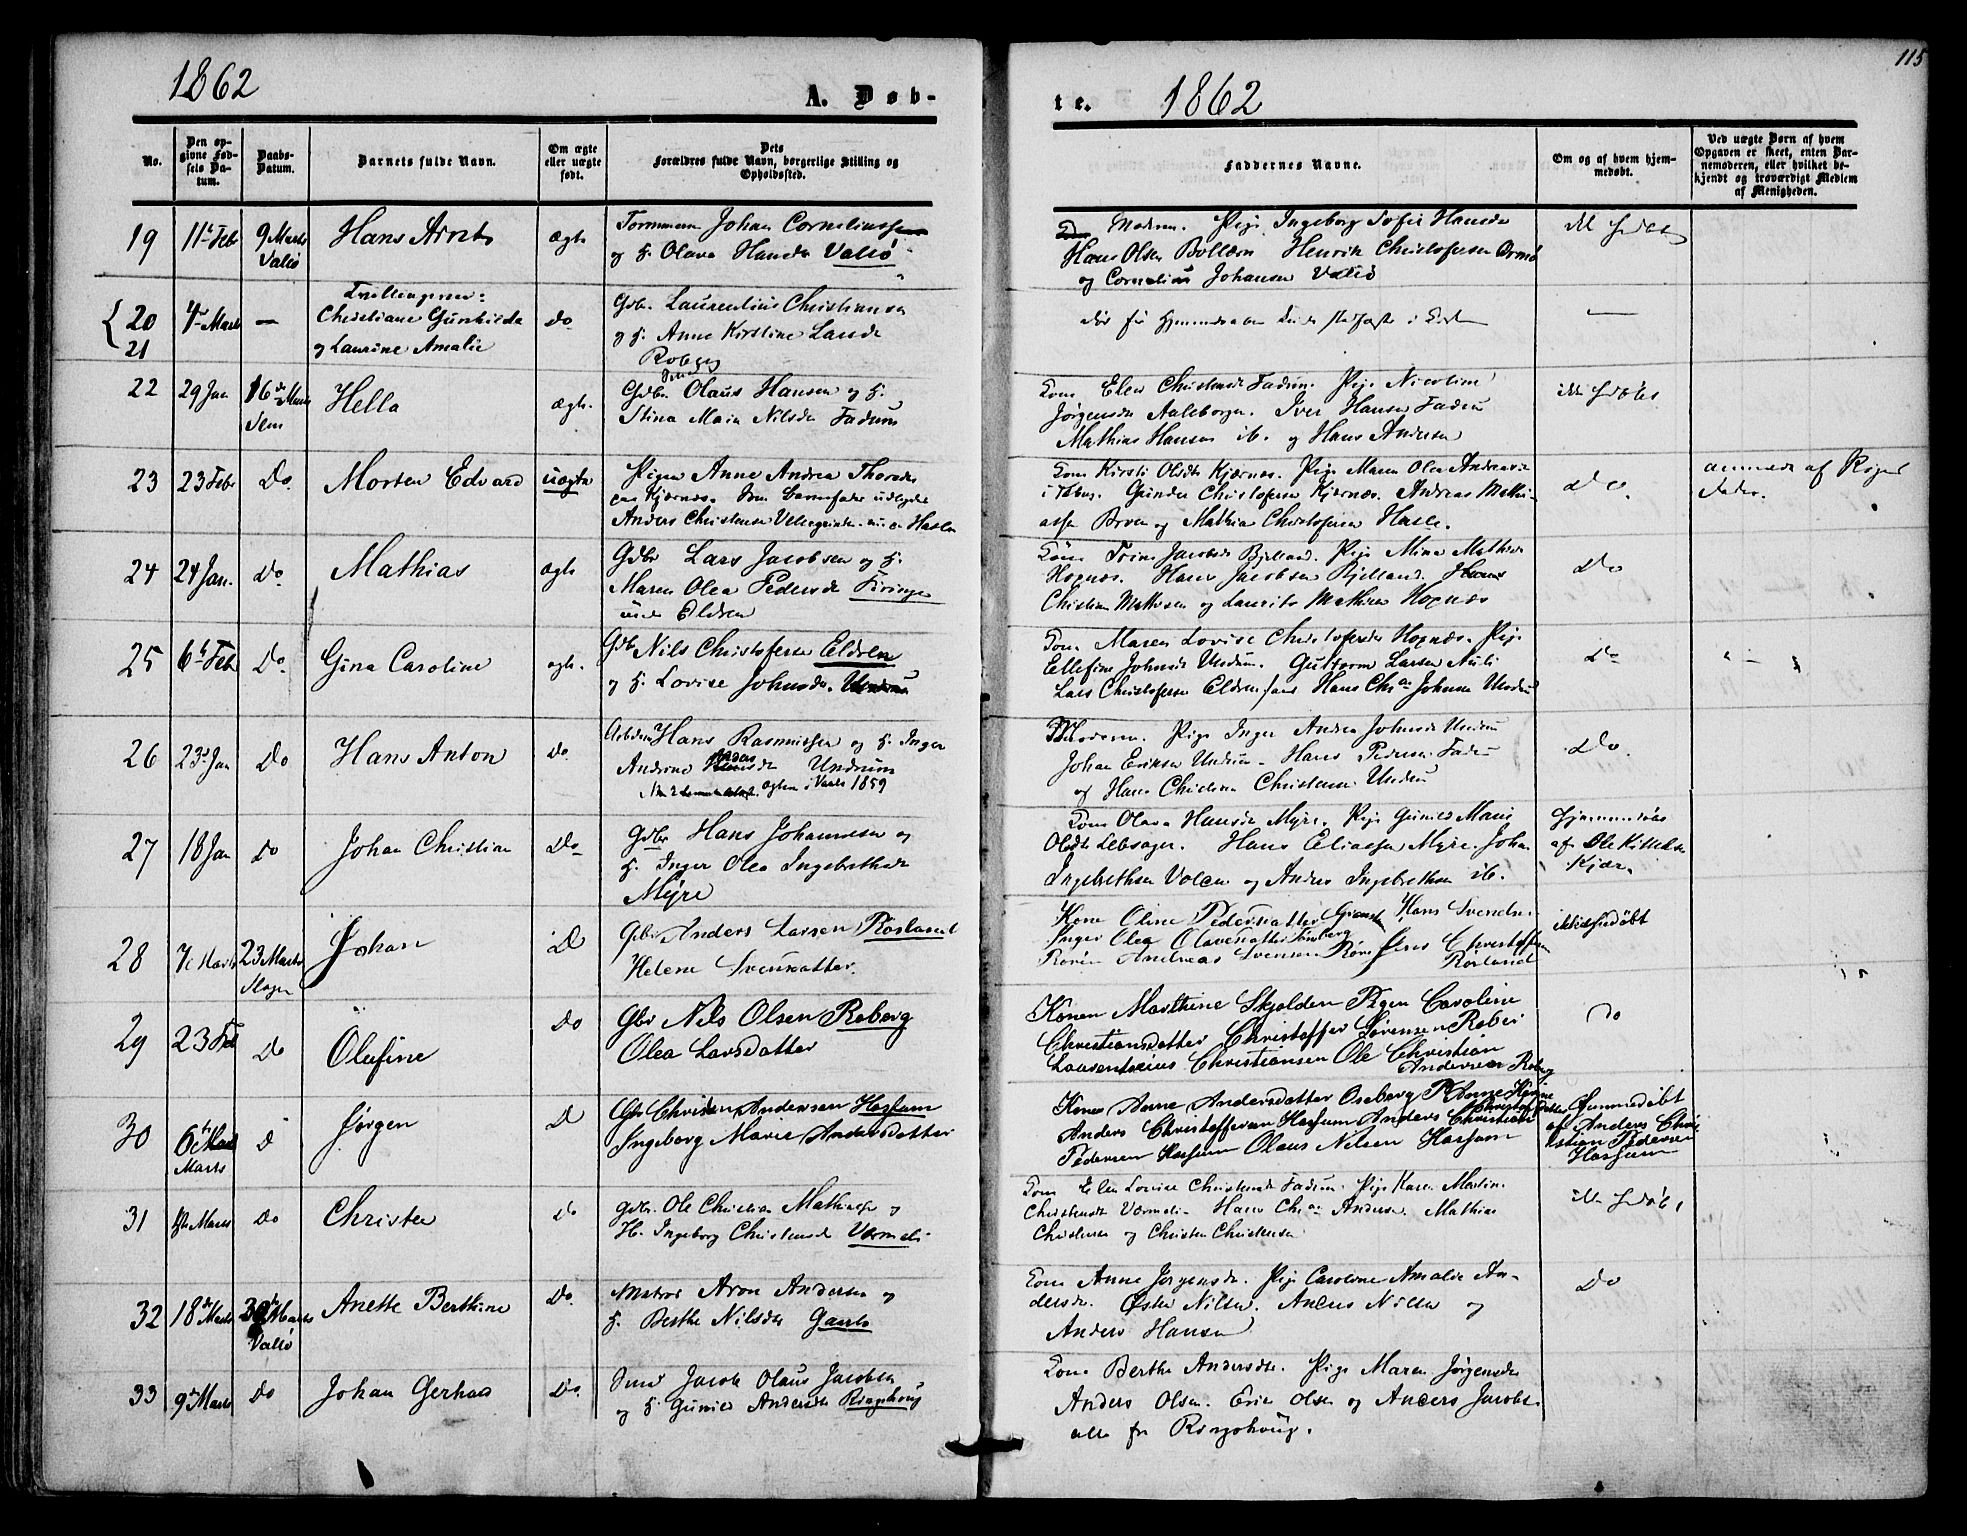 115
1862
A. Døb-
te.
1862
No.
Den op-
givne Fød-
sels Da-
tum.
Daabs-
Datum.
Barnets fulde Navn.
Om ægte
eller uægte
født.
Dets
Forældres fulde Navn, borgerlige Stilling og
Opholdssted.
Faddernes Navne.
Om og af hvem hjem-
medøbt.
Ved uægte Børn af hvem
Opgaven er skeet, enten Bar-
nemoderen, eller hvilket be-
kjendt og troværdigt Medlem
af Menigheden.
19
11te Febr
9 Marts
Vallø
Hans Arnts
ægte
Johan Corneliussen
og H. Olava Hansdr Vallø
Modren. Pige Ingeborg Sofie Hansdr
Hans Olsen Bollærn Henrik Christofersen Ormø
og Cornelius Johansen Vallø
20
21
4de Marts
—
Tvillingerne:
Christiane Gunhilda
og Laurine Amalie
Do
Gdbr. Laurentius Christiansen
og H. Anne Kirstine Larsdr
Roberg
—
22
29 Jan
16de Marts
Sem
Hella
ægte.
Gdbr. Olaus Hansen og H.
Stina Maria Nilsdr Fadum
Kone Elen Christensdr Fadum. Pige Nicoline
Jørgensdr Aaleborgen. Iver Hansen Fadum
Mathias Hansen ib. og Hans Andersen
ikke hjdøbt
23
23 Febr
Do
Morten Edvard
uægte
Pigen Anne Andrea Thorsdr
Kjærnæs. Som Barnefader udlagde
Anders Christensen
Kone Kirsti Olsdtr Kjærnæs. Pige Maren Olea Andreasdr
Christofersen Kjærnæs. Andreas Mathi-
assen Broen og Mathias Christofersen Hasle.
Do.
anmeldt af Pigens
Fader.
24
24 Jan.
Do
Mathias
ægte
Gdbr Lars Jacobsen og H.
Maren Olea Pedersdr
Eldren
Kone Trine Jacobsdr Bjelland. Pige Mina Mathisdr
Hognæs. Hans Jacobsen Bjelland. Hans
Christian Mathisen og Laurits Mathisen Hognæs
Do
25
6te Febr
Do
Gina Caroline
ægte.
Gdbr Nils Christofersen Eldren
og H. Lovise Johnsdr. Undrum
Kone Maren Lovise Christofersdr Hognæs. Pige
Ellefine Johnsdr Undrum. Guttorm Larsen Auli
Lars Christofersen Eldren samt Hans Chr. Johnsen Undrum
Do
26
23de Jan
Do
Hans Anton
Do
Arbdm Hans Rasmussen og H. Inger
Andrine Undrum
i Marts 1859
Moderen. Pige Inger Andrea Johnsdr Undrum
Johan Eriksen Undrum Hans Pedersen Fadum
af Hans Christian Christiansen Undrum
Do.
27
18 Jan
Do
Johan Christian
Do
Gdbr Hans Johannesen og
H. Inger Olea Ingebrethsdr
Myre
Kone Olava Hansdr Myre. Pige Gunild Marie
Olsdtr Lebsager. Hans Eliassen Myre. Johan
Ingebrethsen Volden og Anders Ingebrethsen ib.
Hjemmedøbt
af Ole Kittelsen
Kjær.
28
7de Marts
23 Marts
Slagen
Johan
D
Gbr Anders Larsen Røsland
Helene Svensdatter.
Kone Oline Pedersdatter Hans Svendsen
Inger Olea Olavesdatter Tønsberg
Andreas Svensen Jens Christoffersen
Rørland
ikke hjemdøbt
29
23 Feb
Do
Olufine
Do
Gbr Nils Olsen Roberg
Olea Larsdatter
Konen Marthine Skjolden Pigen Caroline
Christiansdatter Christoffer Sørensen Roberg
Laurentsius Christiansen Ole Christian
Andersen Roberg
Do
30
6te
Marts
D
Jørgen
D
Gbr Christen Andersen Hassum
Ingeborg Marie Andersdatter
Kone Anne Andersdatter Oseberg
Anders Christoffersen Hassum Anders Christian
Pedersen Hassum Olaus Nilsen Hassum
Hjemmedøbt
af Anders Chri-
stian Pedersen
Hassum
31
Marts
Do
Christen
Do
Gdbr. Ole Christian Mathiassen og
H. Ingeborg Christensdr Vermeli
Kone Elen Lovise Christensdr Fadum. Pige Karen Martine
Christensdtr Vermeli Hans Chr. Andersen. Mathias
Christensen og Christen Christensen
ikke hjdøbt
32
18de Marts
30te Marts
Vallø
Anette Berthine
Do.
Matros Aron Andersen og
H. Berthe Nilsdtr
Kone Anne Jørgensdr. Pige Caroline Amalie An-
dersdr. Østen Nilsen. Anders Nilsen og
Anders Hansen
Do
33
9de Marts
Do
Johan Gerhard
Do.
Jacob Olaus Jacobsen
og H. Gunild Andersdtr Ringshoug
Kone Berthe Andersdtr. Pige Maren Jørgensdr
Anders Olsen. Erik Olsen og Anders Jacobsen
alle fra Ringshoug.